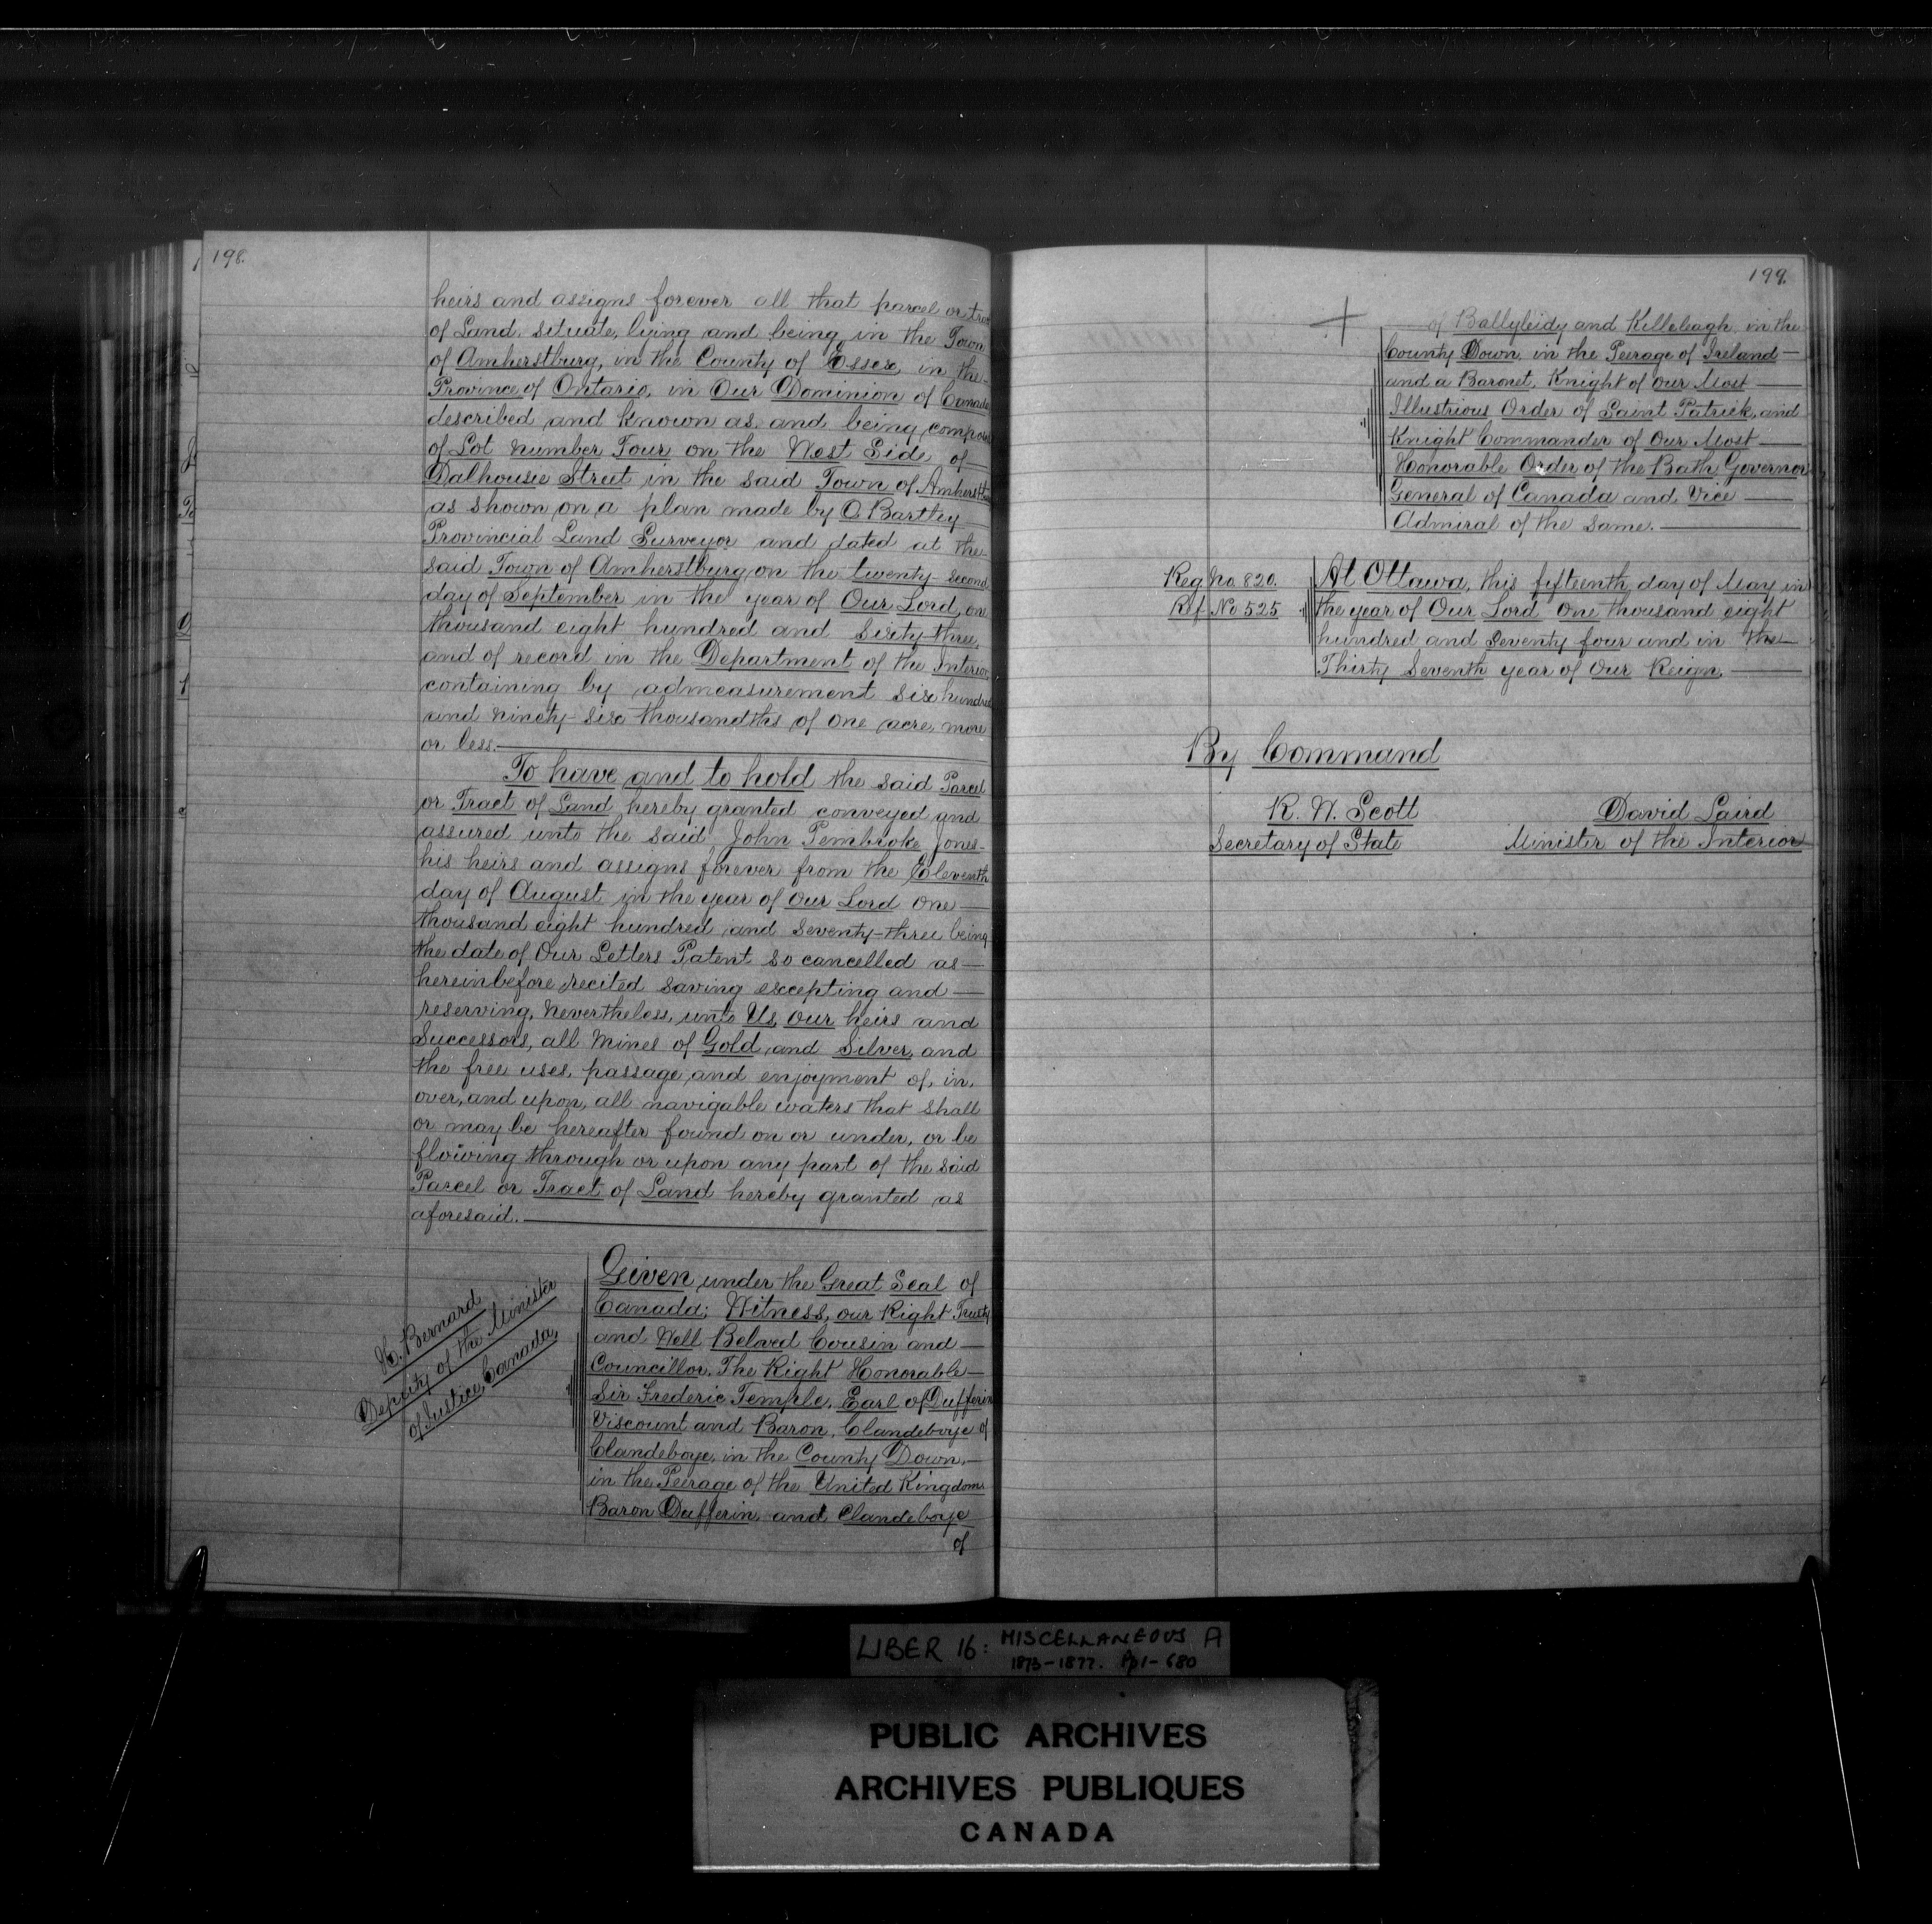 198.
heirs and assigns forever all that parcel or
of Land, situate, lying and being in the Town
of Amherstburg, in the County of Essex, in the
Province of Ontario, in Our Dominion of Canada
described and known as and being
of Lot number Four on the West Side of
Dalhousie Street in the said Town of
as shown on a plan made by O Bartley
Provincial Land Surveyor and dated at the
said Town of Amherstburg on the twenty-second
day of September in the year of Our Lord one
thousand eight hundred and Sixty-three,
and of record in the Department of the Interior,
containing by admeasurement six hundred
and ninety-six thousandths of one acre, more
or less.
To have and to hold the said Parcel
or Tract of Land hereby granted conveyed and
assured unto the said John Pembroke Jones
his heirs and assigns forever from the Eleventh
day of August in the year of Our Lord One
thousand eight hundred and Seventy-three being
the date of Our Letters Patent so cancelled as
hereinbefore recited saving excepting and
reserving, nevertheless, unto Us, Our heirs and
Successors, all mines of Gold and Silver, and
the free uses, passage, and enjoyment of, in,
over, and upon, all navigable waters that shall
or may be hereafter found on or under, or be
flowing through or upon any part of the said
Parcel or Tract of Land hereby granted as
aforesaid.
H. Bernard
Deputy of the Minister
of Justice, Canada,
Given under the Great Seal of
Canada; Witness, our Right Trusty
and Well Beloved Cousin and
Councillor, The Right Honorable
Sir Frederic Temple, Earl of Dufferin
Viscount and Baron, Clandeboye of
Clandeboye, in the County Down,
in the Peerage of the United Kingdom
Baron Dufferin and Clandeboye
of
199.
of Ballyleidy and Killeleagh in the
County Down in the Peerage of Ireland
and a Baronet, Knight of our Most
Illustrious Order of Saint Patrick, and
Knight Commander of Our Most
Honorable Order of the Bath, Governor
General of Canada and Vice
Admiral of the same.
Reg No 820.
Ref No 525
At Ottawa, this fifteenth day of May in
the year of Our Lord One thousand eight
hundred and Seventy four and in the
Thirty Seventh year of Our Reign.
By Command
R. W. Scott
Secretary of State
David Laird
Minister of the Interior
LIBER 16: MISCELLANEOUS A
1873-1877. Pp 1-680
PUBLIC ARCHIVES
ARCHIVES PUBLIQUES
CANADA